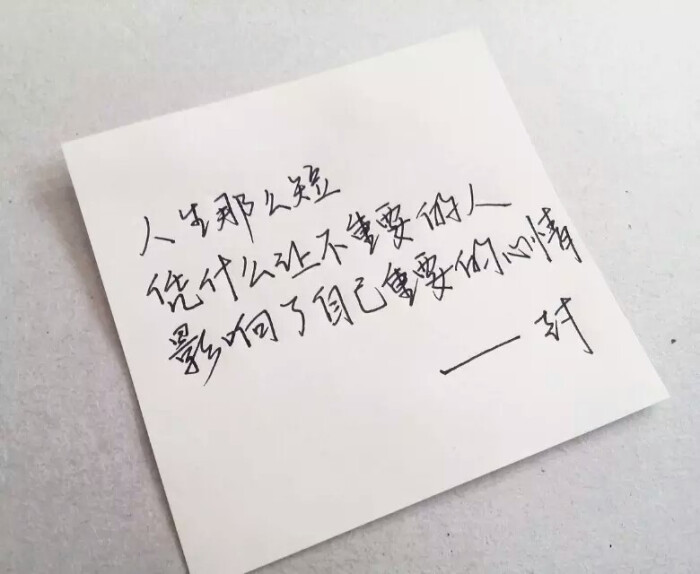 人生那么短
凭什么让不重要的人
影响了自己重要的心情
——封